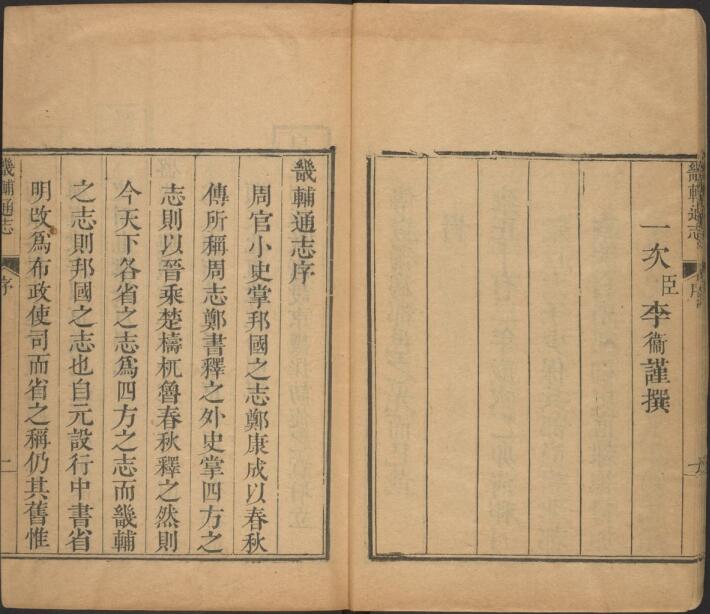 畿輔通志
一次臣李衞謹撰
畿輔通志序
周官小史掌邦國之志鄭康成以春秋
傳所稱周志鄭書釋之外史掌四方之
志則以晉乘楚檮杌魯春秋釋之然則
今天下各省之志爲四方之志而畿輔
之志則邦國之志也自元設行中書省
明改爲布政使司而省之稱仍其舊惟
畿輔通志
序
一